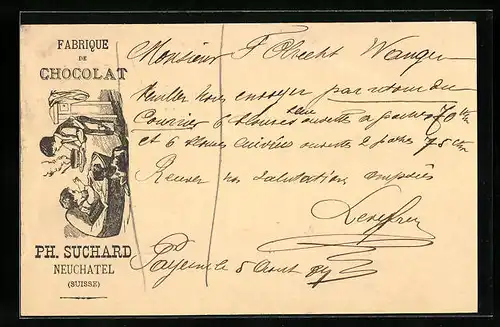 FABRIQUE
DE
CHOCOLAT
PH. SUCHARD
NEUCHATEL
(SUISSE)
Monsieur F Obrecht Wangen
Veuillez nous envoyer par retour du
Courrier 6 blouses ouverte 2 poches 70 ctm
et 6 blouses ouverte 2 poches 75 ctm
Recevez nos salutations empressées
Payerne le 5 Aout